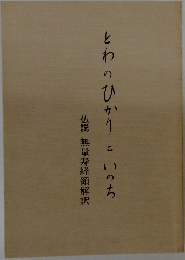 とわのひかりといのち
仏説 無量寿経領解訳